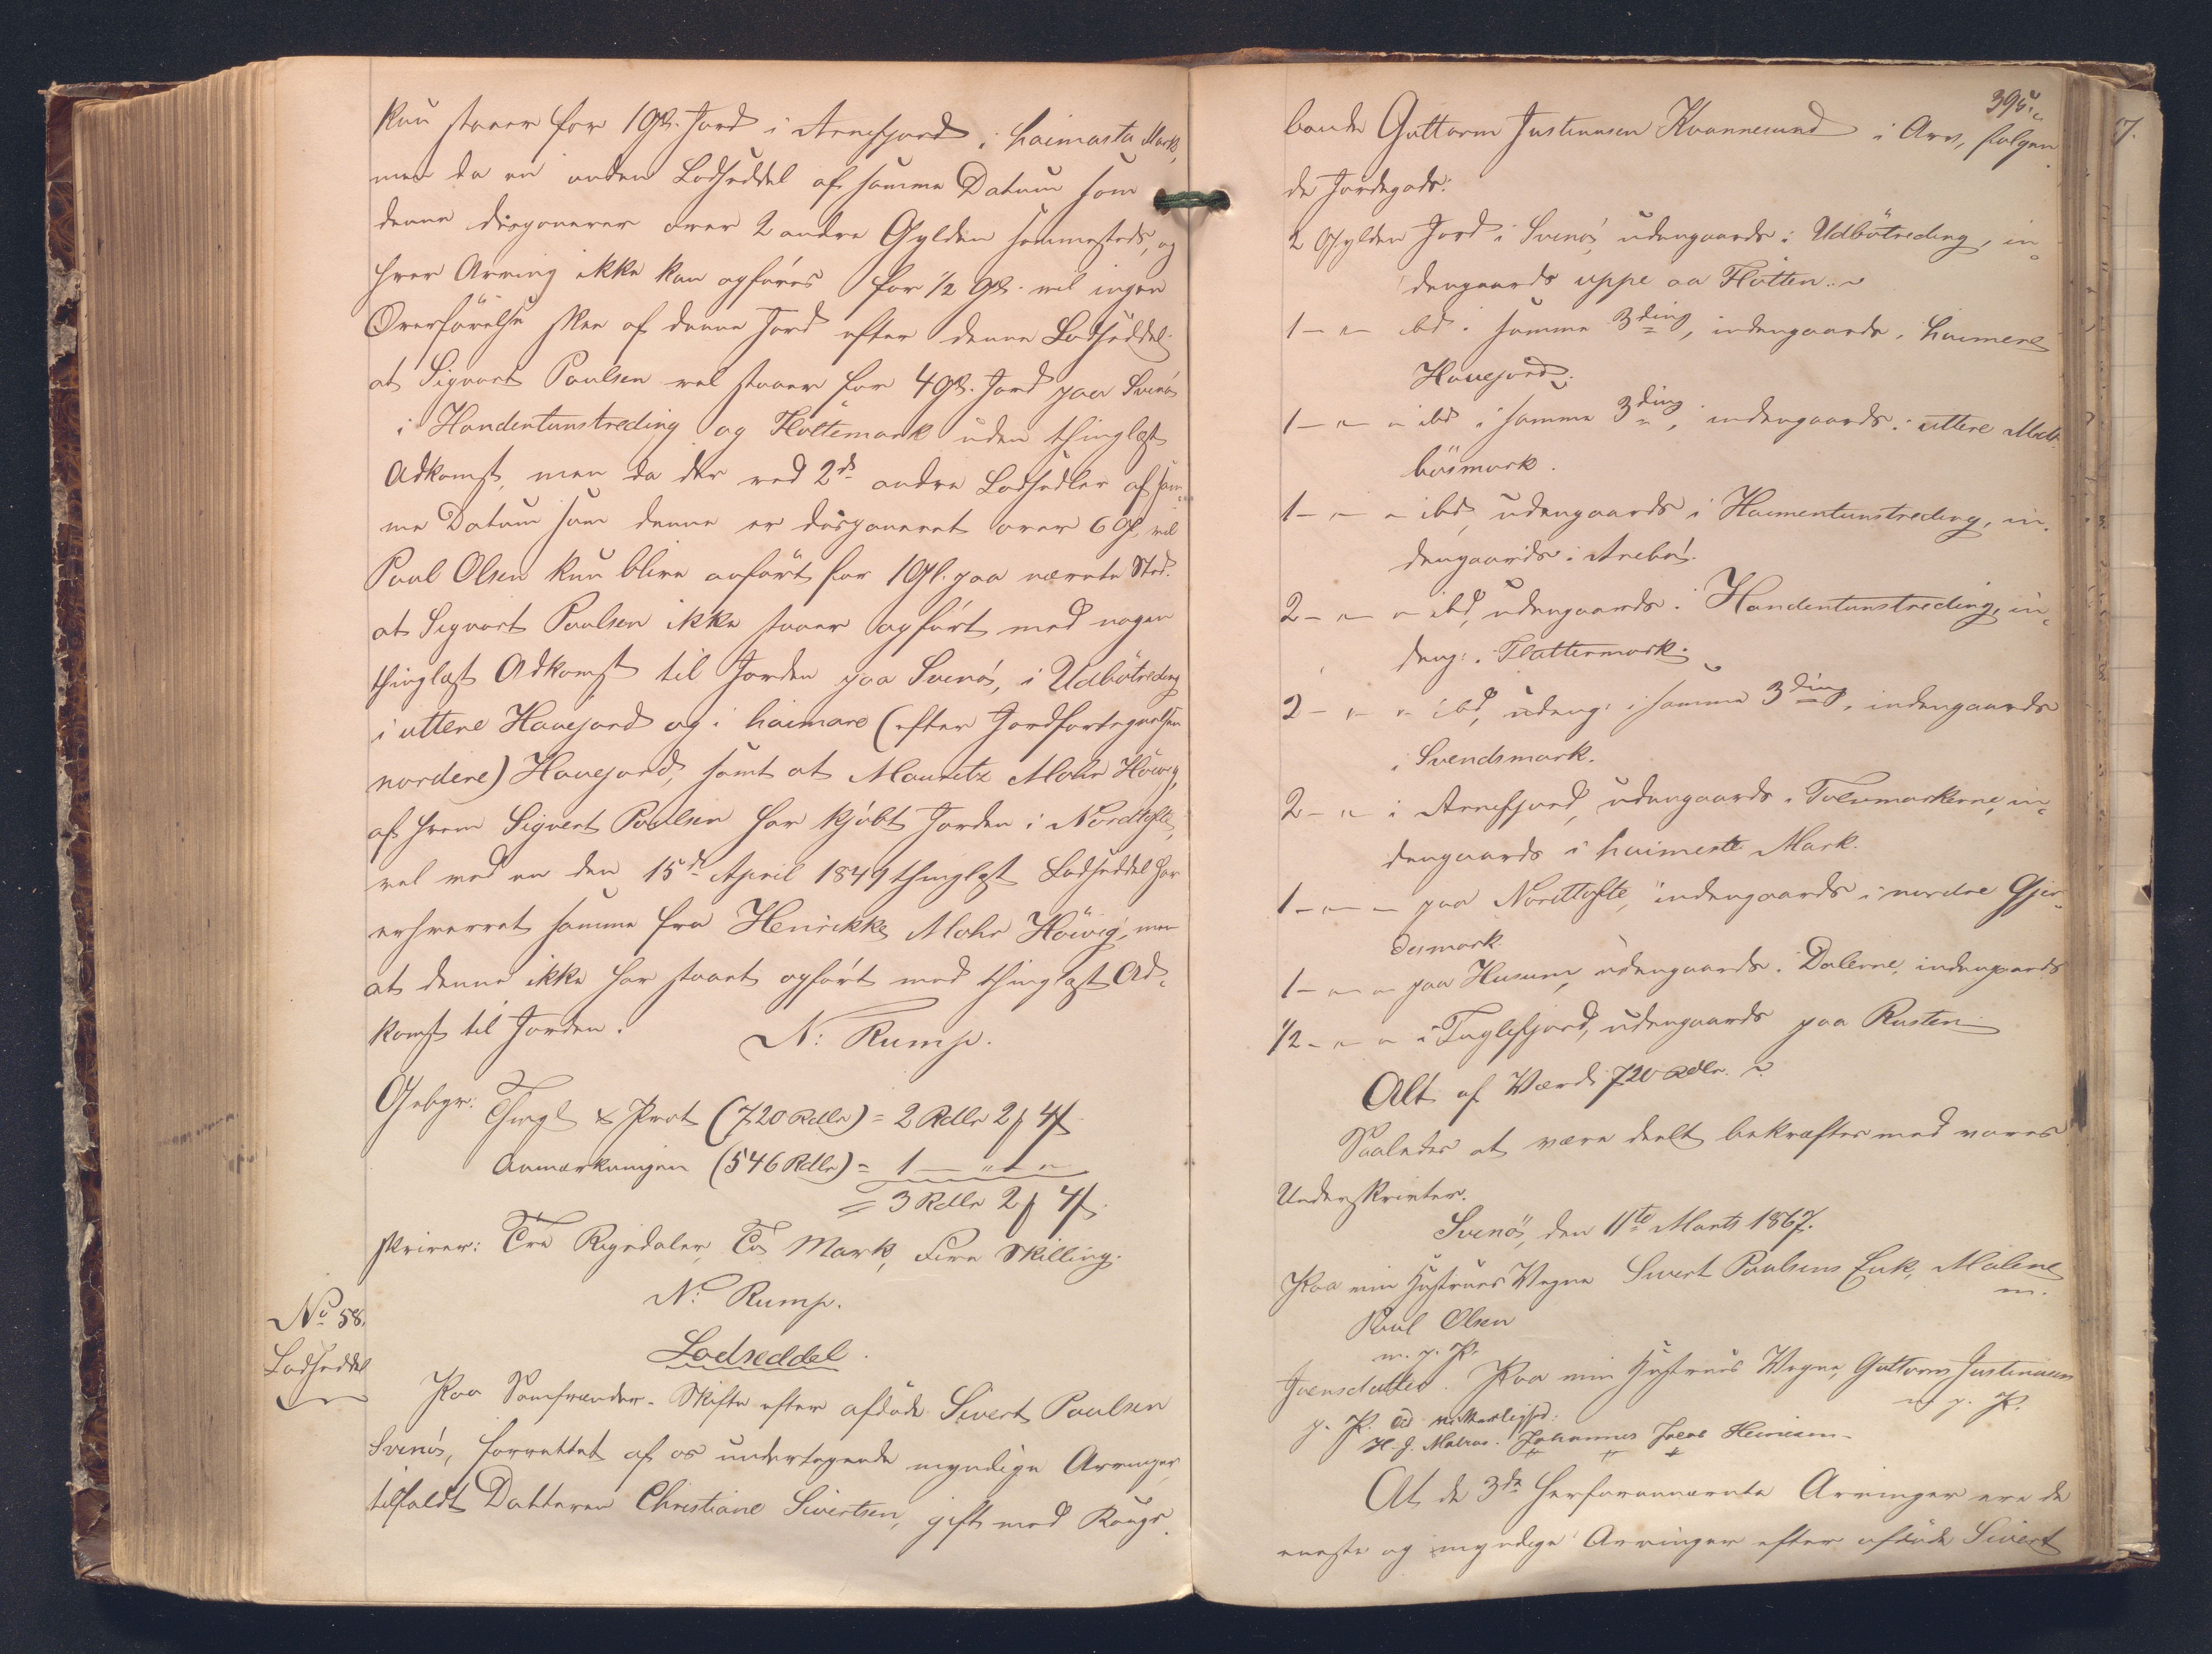 kun staaer for 1 Gl. Jord i Arnefjord i haimasta Mark,
men da en anden Lodseddel af samme Datum som
denne disponerer over 2 andre Gylden sammesteds, og
hver Arving ikke kan opføres for 1/2 Gl. vil ingen
Overførelse skee af denne Jord efter denne Lodseddel.
at Sigvart Poulsen vel staaer for 4 Gl. Jord paa Svinø
i Handentunstreding og Flöttemark uden thinglæst
Adkomst, men da der ved 2de andre Lodsedler af sam-
me Datum som denne er disponeret over 6 Gl, vil
Poul Olsen kun blive anført for 1 Gl. paa nævnte Sted.
at Sigvart Poulsen ikke staaer opført med nogen
thinglæst Adkomst til Jorden paa Svinø, i Udbötreding
i uttere Havejord og i haimare (efter Jordfortegnelsen
nordere) Havejord, samt at Mauritz Mohr Höivig,
af hvem Sigvert Poulsen har kjøbt Jorden i Nordtofte,
vel med en den 15de April 1849 thinglæst Lodseddel har
erhvervet samme fra Henrikke Mohr Höivig, men
at denne ikke har staaet opført med thinglæst Ad-
komst til Jorden.
N: Rump.
Gebyr: Thingl & Prot (720 Rdlr) = 2 Rdlr 2 ₰ 4 ß
Anmærkningen (546 Rdlr) = 1 — " - "
= 3 Rdlr 2 ₰ 4 ß.
skriver: Tre Rigsdaler, To Mark, Fire Skilling.
N: Rump.
No 58.
Lodseddel
Lodseddel.
Paa Samfrænder-Skifte efter afdøde Sivert Poulsen
Svinø, forrettet af os undertegnede myndige Arvinger,
tilfaldt Datteren Christiane Sivertsen, gift med Kongs-
395.
bonde Guttorm Justinusen Kvannesund i Arv, følgen-
de Jordegods:
2 Gylden Jord i Svinø, udengaards i Udbötreding, in-
dengaards uppe aa Flötten.
1 - " - ibd. i samme 3ding, indengaards i haimere
Havejord.
1 - " - " ibd i samme 3ding, indengaards i uttere
bösmark.
1 - " - " ibd, udengaards i Haimentunstreding, in-
dengaards i Arebø.
2 - " - " ibd, udengaards i Handentunstreding, in-
deng: i Flattermark.
2 - " - " ibd, udeng: i samme 3ding, indengaards
i Svendsmark.
2 - " - i Arnefjord, udengaards i Tolvmarkerne, in-
dengaards i haimeste Mark.
1 - " - " paa Nordtofte, indengaards i nordre Gjer-
desmark.
1 - " - " paa Husum, udengaards i Dalerne, indengaards
1/2 - " - " i Fuglefjord, udengaards paa Rusten
Alt af Værdi 720 Rdlr.
Saaledes at være deelt bekræftes med vores
Underskrivter.
Svinø, den 11te Marts 1867.
Paa min Hustrues Vegne Sivert Poulsens Enk, Malene
Poul Olsen m.
m. p. P.
Joensdatter. Paa min Hustrues Vegne, Guttorm Justinusen
p. P. m p. P.
Til vitterlighed:
H. J. Matras. Johannes Joens Heinesen
At de 3de herforannævnte Arvinger ere de
eneste og myndige Arvinger efter afdøde Sivert